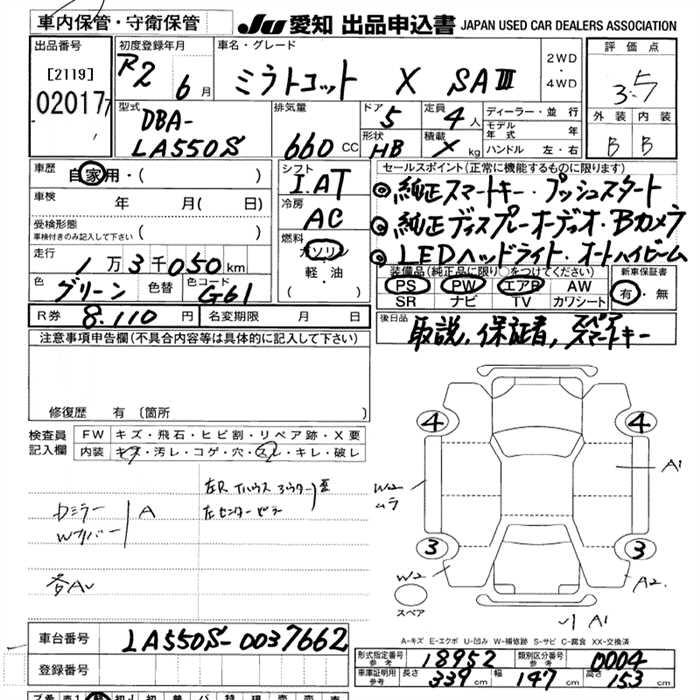 車内保管・守衛保管
JU 愛知 出品申込書 JAPAN USED CAR DEALERS ASSOCIATION
出品番号
[2119]
02017
初度登録年月
R2 6月
車名・グレード
ミラトコット X SAⅢ
2WD
・
4WD
評価点
3.5
型式
DBA-
LA550S
排気量
660 CC
ドア 5
形状 HB
定員 4人
積載 X kg
ディーラー・並行
モデル年式 年
ハンドル 左・右
外装 内装
B B
車歴
自家用・( )
車検
年 月( 日)
受検形態
車検付きのみ記入して下さい ( )
走行
1万3千050km
色
グリーン
色替
色コード
G61
R券 8.110円
名変期限 月 日
シフト
I.AT
冷房
AC
燃料
ガソリン
軽・油
( )
セールスポイント(正常に機能するものに限ります)
◎純正スマートキー・プッシュスタート
◎純正ディスプレーオーディオ・Bカメラ
◎LEDヘッドライト・オートハイビーム
装備品(純正品に限り○をつけてください)
PS PW エアB AW
SR ナビ TV カワシート
新車保証書
有・無
後日品
取説, 保証書, スペアスマートキー
注意事項申告欄(不具合内容等は具体的に記入して下さい)
修復歴 有 〔箇所
検査員
記入欄
FW キズ・飛石・ヒビ割・リペア跡・X要
内装 キズ・汚レ・コゲ・穴・スレ・キレ・破レ
A
4 4
3 3
W2
ムラ
A1
W2
A2
A1
スペア
A-キズ E-エクボ U-凹み W-補修跡 S-サビ C-腐食 XX-交換済
車台番号 LA550S-0037662
登録番号
形式指定番号
参考
18952
類別区分番号
参考
0004
車庫証明用
参考
長さ 339cm
幅 147cm
高さ 153cm